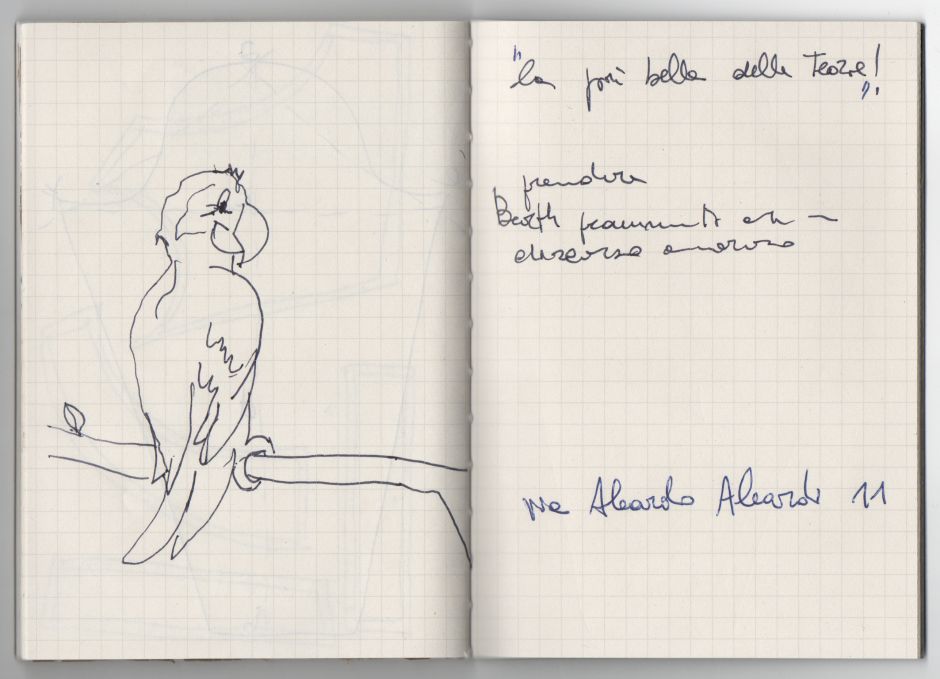 "la più bella delle Teorie!".
prendere
Barth frammenti di un
discorso amoroso
via Aleardo Aleardi 11